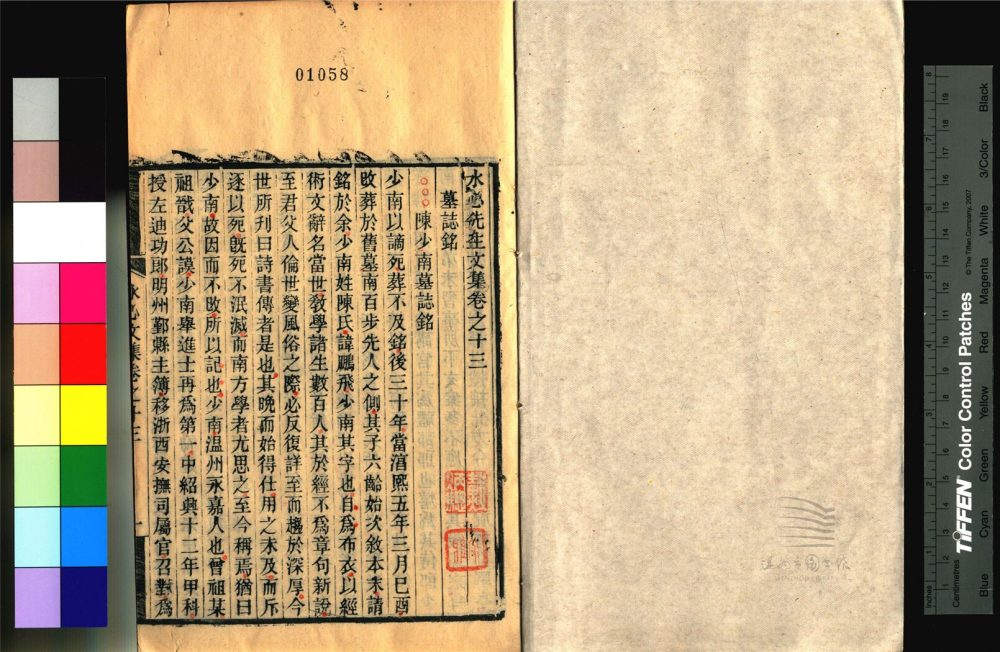 01058
水心先生文集卷之十三
墓誌銘
陳少南墓誌銘
少南以謫死葬不及銘後三十年當淳熙五年三月巳酉
改葬於舊墓南百步先人之側其子六齡始次敘本末請
銘於余少南姓陳氏諱鵬飛少南其字也自為布衣以經
術文辭名當世敎學諸生數百人其於經不為章句新說
至君父人倫世變風俗之際必反復詳至而趨於深厚今
世所刊曰詩書傳者是也其晚而始得仕用之未及而斥
逐以死旣死不泯滅而南方學者尤思之至今稱焉猶曰
少南故因而不改所以記也少南温州永嘉人也曾祖某
祖戩父公謨少南舉進士再為第一中紹興十二年甲科
授左迪功郎明州鄞縣主簿移浙西安撫司屬官召對為
水心文集卷之十三
一
温州市圖書館
Inches
Centimetres
TIFFEN Color Control Patches
© The Tiffen Company, 2007
Blue
Cyan
Green
Yellow
Red
Magenta
White
3/Color
Black